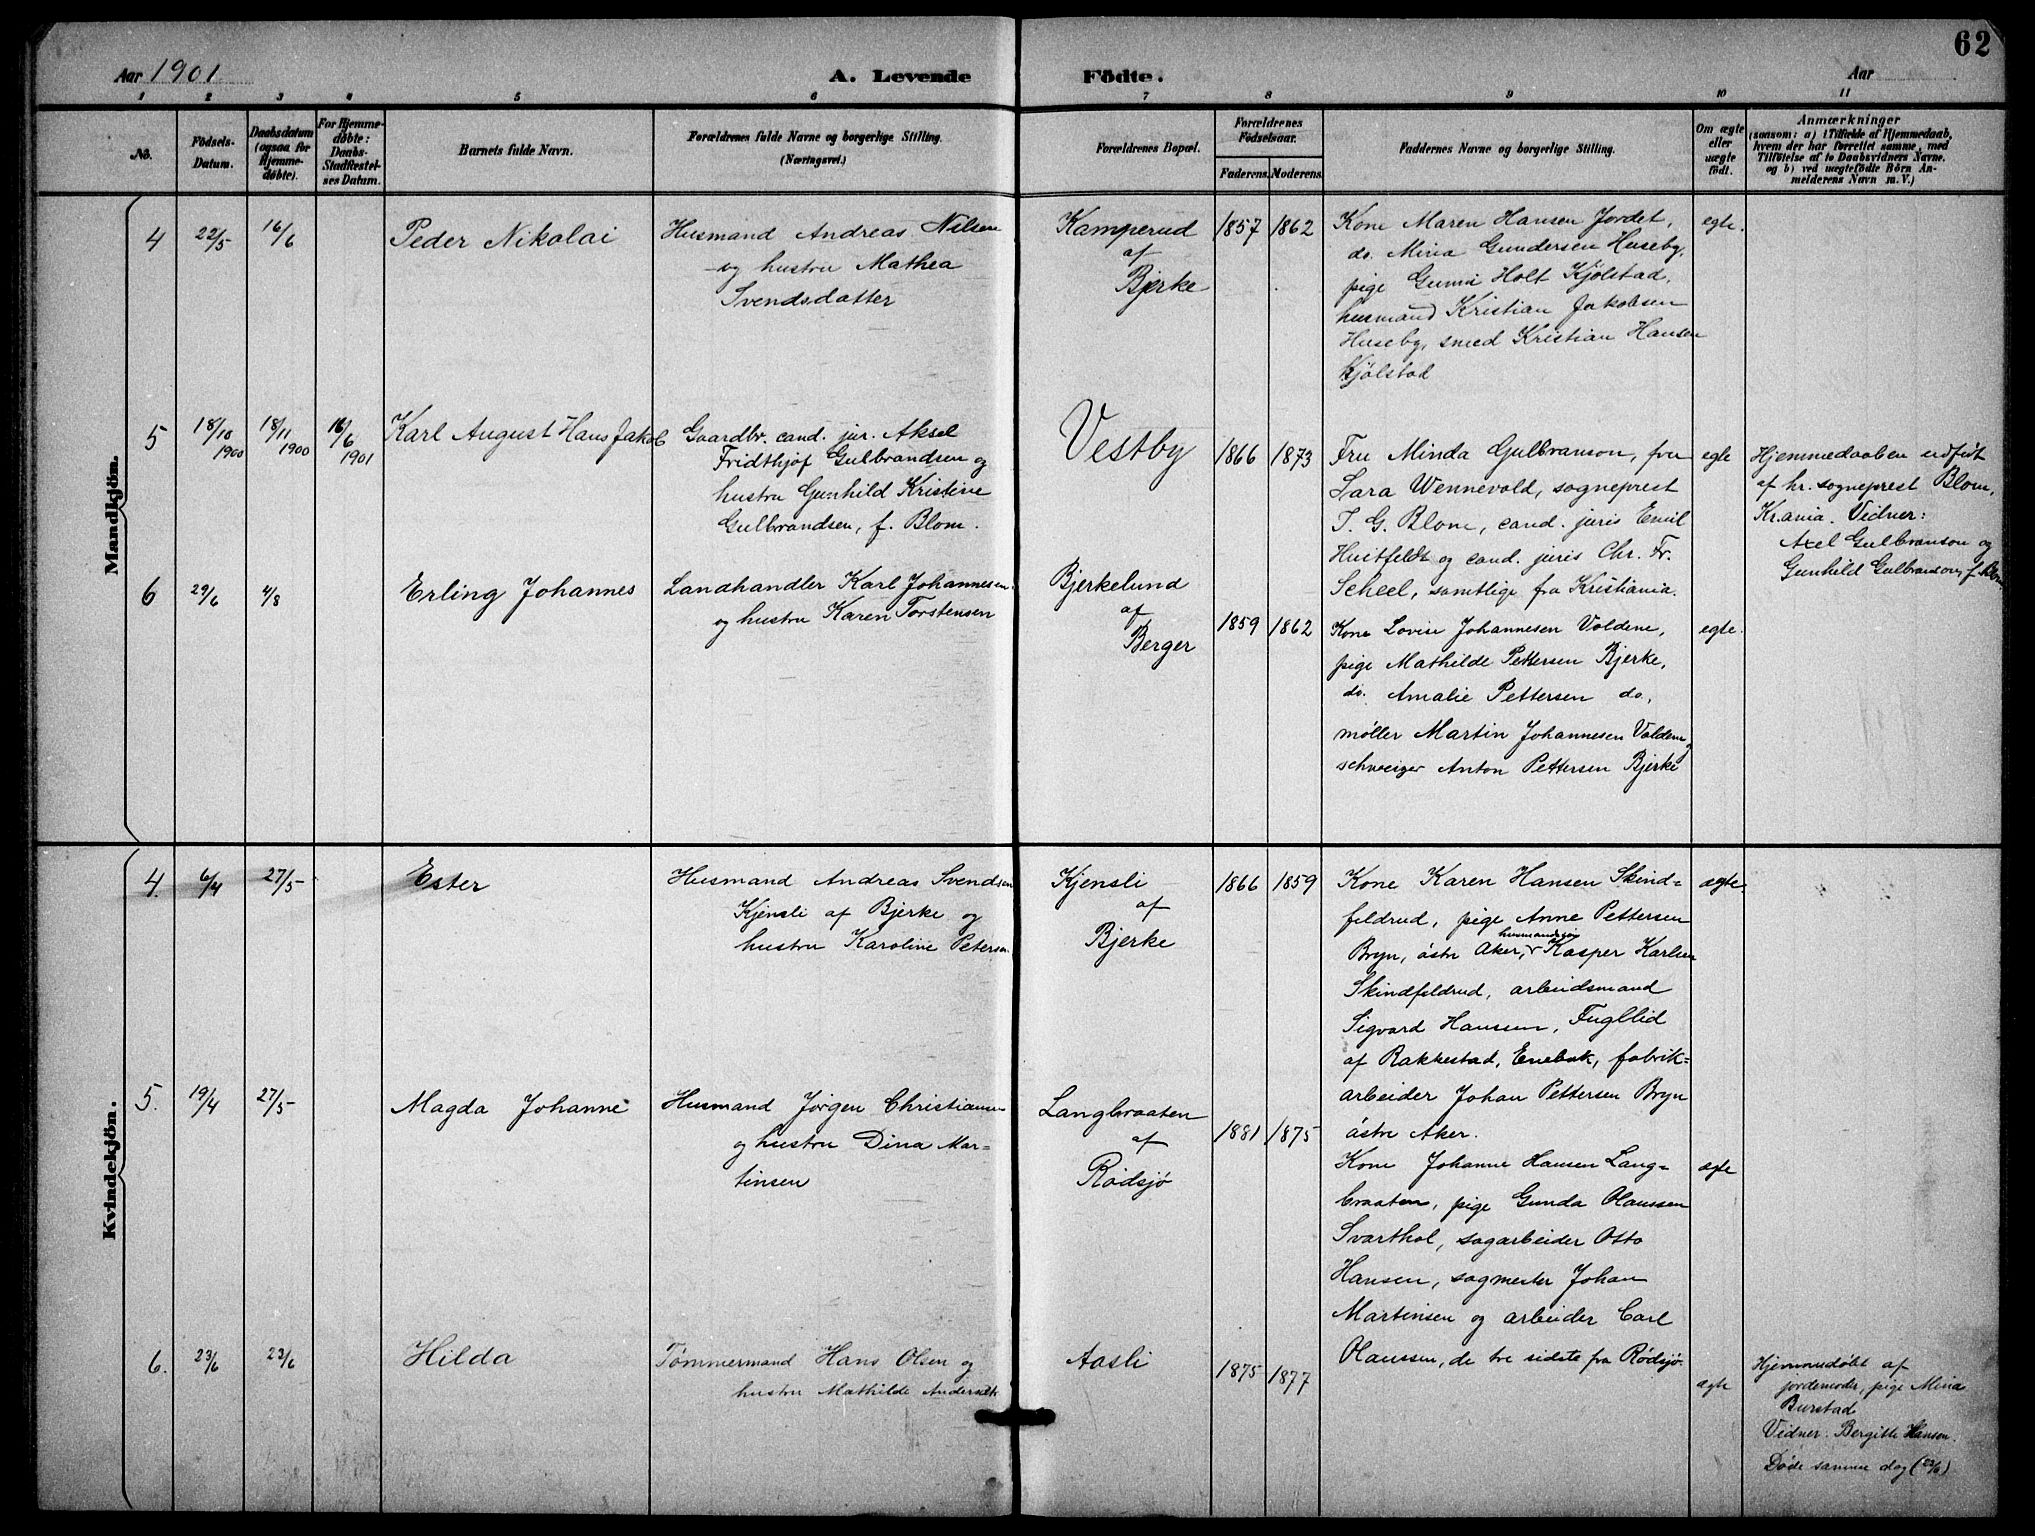 62
Aar 1901
A. Levende Födte.
Aar
1 2 3 4 5 6 7 8 9 10 11
No.
Födsels-
Datum.
Daabsdatum
(ogsaa for
Hjemme-
døbte).
For Hjemme-
døbte:
Daabs-
Stadfæstel-
ses Datum.
Barnets fulde Navn.
Forældrenes fulde Navne og borgerlige Stilling.
(Næringsvei.)
Forældrenes Bopæl.
Forældrenes
Födselsaar.
Faderens. Moderens.
Faddernes Navne og borgerlige Stilling.
Om ægte
eller
uægte
födt.
Anmærkninger
(saasom: a) i Tilfælde af Hjemmedaab,
hvem der har forrettet samme, med
Tilföielse af to Daabsvidners Navne,
og b) ved uægtefödte Börn An-
melderens Navn m. V.)
Mandkjön.
4 22/5 16/6
Peder Nikolai
Husmand Andreas Nilsen
og hustru Mathea
Svendsdatter
Kamperud
af
Bjerke
1857 1862
Kone Maren Hansen Jordet,
do. Mina Gundersen Huseby,
pige Holt Kjölstad,
husmand Kristian Jakobsen
Huseby, smed Kristian Hansen
Kjölstad
egte.
5 18/10 1900 18/11 1900 16/6 1901
Karl August Hans Jakob
Gaardbr. cand. jur. Aksel
Fridthjof Gulbrandsen og
hustru Gunhild Kristine
Gulbrandsen, f. Blom.
Vestby
1866 1873
Fru Minda Gulbranson, fru
Sara Wennevold, sogneprest
T. G. Blom, cand. juris Emil
Huitfeldt og cand. juris Chr. Fr.
Scheel, samtlige fra Kristiania.
egte
Hjemmedaaben udført
af hr. sogneprest Blom,
Kr.ania. Vidner:
Axel Gulbranson og
Gunhild Gulbranson, f. Blom
6 29/6 4/8
Erling Johannes
Landhandler Karl Johannesen
og hustru Karen Torstensen
Bjerkelund
af
Berger
1859 1862
Kone Lovise Johannesen Voldene,
pige Mathilde Pettersen Bjerke,
do. Amalie Pettersen do,
møller Martin Johannesen Voldene
schweizer Anton Pettersen Bjerke
egte.
Kvindekjön.
4. 6/4 27/5
Ester
Husmand Andreas Svendsen
Kjensli af Bjerke og
hustru Karoline Petersen
Kjensli
af
Bjerke
1866 1859
Kone Karen Hansen Skind=
feldrud, pige Anne Pettersen
Bryn, östre Aker, Kasper Karlsen
Skindfeldrud, arbeidsmand
Sigvard Hanssen, Fugllid
af Rakkestad, Enebak, fabrik=
arbeider Johan Pettersen Bryn
östre Aker.
ægte.
5. 19/4 27/5
Magda Johanne
Husmand Jørgen Christiansen
og hustru Dina Mar=
tinsen
Langbraaten
af
Rødsjø
1881 1875
Kone Johanne Hansen Lang=
braaten, pige Gunda Olaussen
Svarthol, sagarbeider Otto
Hansen, sagmester Johan
Martinsen og arbeider Carl
Olaussen, de tre sidste fra Rødsjø.
ægte
6. 23/6 23/6
Hilda
Tømmermand Hans Olsen og
hustru Mathilde
Aasli
1875 1877
ægte
Hjemmedøbt af
jordemoder, pige Mina
Burstad
Vidner: Bergitte Hansen.
Døde samme dag (23/6)